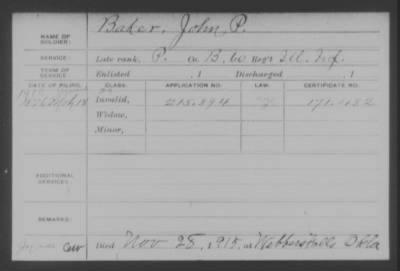 Baker, John, P.
NAME OF SOLDIER:
SERVICE: Late rank, P. Co. B, 60 Reg't Ill. Inf.
TERM OF SERVICE: Enlisted , 1 Discharged , 1
DATE OF FILING. CLASS. APPLICATION NO. LAW. CERTIFICATE NO.
1876 Mch 18 Invalid, 215.894 171.182
Widow,
Minor,
ADDITIONAL SERVICES:
REMARKS:
Died Nov 28, 1915, at Webbers Falls Okla